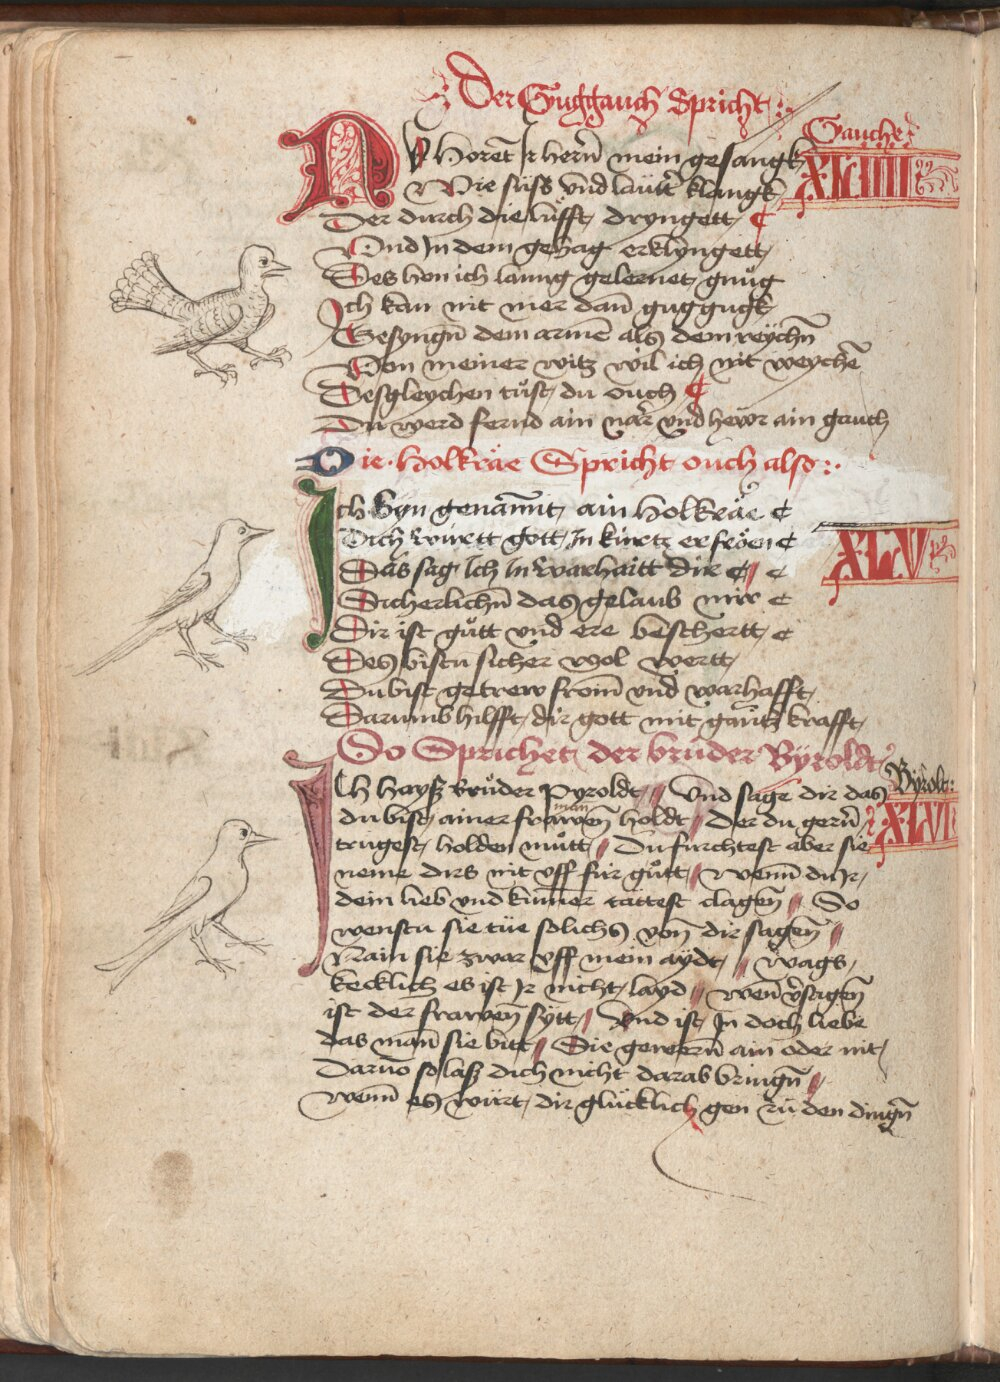 Der Guggauch Spricht :.
Gauche
NU Horet Ir hern̄ mein gesangk
XLIIII
Wie süss vnd lautt klangk
Der durch die lüfft dryngett
Vnd In dem gehag erklyngett
Des hon ich lanng gelernet gnůg
Ich kan nit mer dan̄ guggugk
Gesyngn̄ dem armē als dem reychn̄
Von meiner witz wil ich nit weychē
Desgleychen tůst du ouch
Du werd fernd ain nar̄ vnd hewr ain gauch
Die Holkräe Spricht ouch also :.
Ich byn genan̄nt ain Holkräe
Dich württ gott In kürtz erfröen
XLV
Das sag Ich In warhaitt dir
Sicherlichn̄ das gelaub mir
Dir ist gůtt vnd ere beschertt
Des bistu sicher wol wertt
Du bist getrew from̄ vnd warhafft
Darumb hilfft dir gott mit gantz krafft
So Sprichet der brüder Byroldt
Byrolt :
Ich hayß brůder Pyroldt // Vnd sage dir das
man
du bist ainer frawen̄ holdt // Der du gern̄
XLVI
trügest holden můtt // Du fürchtest aber sie
neme dirs nit vff für gůtt // Wenn̄ du Ir
dein lieb vnd kum̄er tättest clagen̄ // So
wenstu sie tüe solichs von̄ dir sagen̄ //
Nain sie zwar vff mein aydt // Wags
kecklich es ist Ir nicht layd // wen̄ v̄sagen̄
ist der frawen̄ sytt // Vnd ist In doch liebe
das man̄ sie bitt // Sie gewern̄ ain oder nit
Darūo so laß dich nicht darab bringn̄ //
wenn̄ es würt dir glücklich gen zů den dingn̄